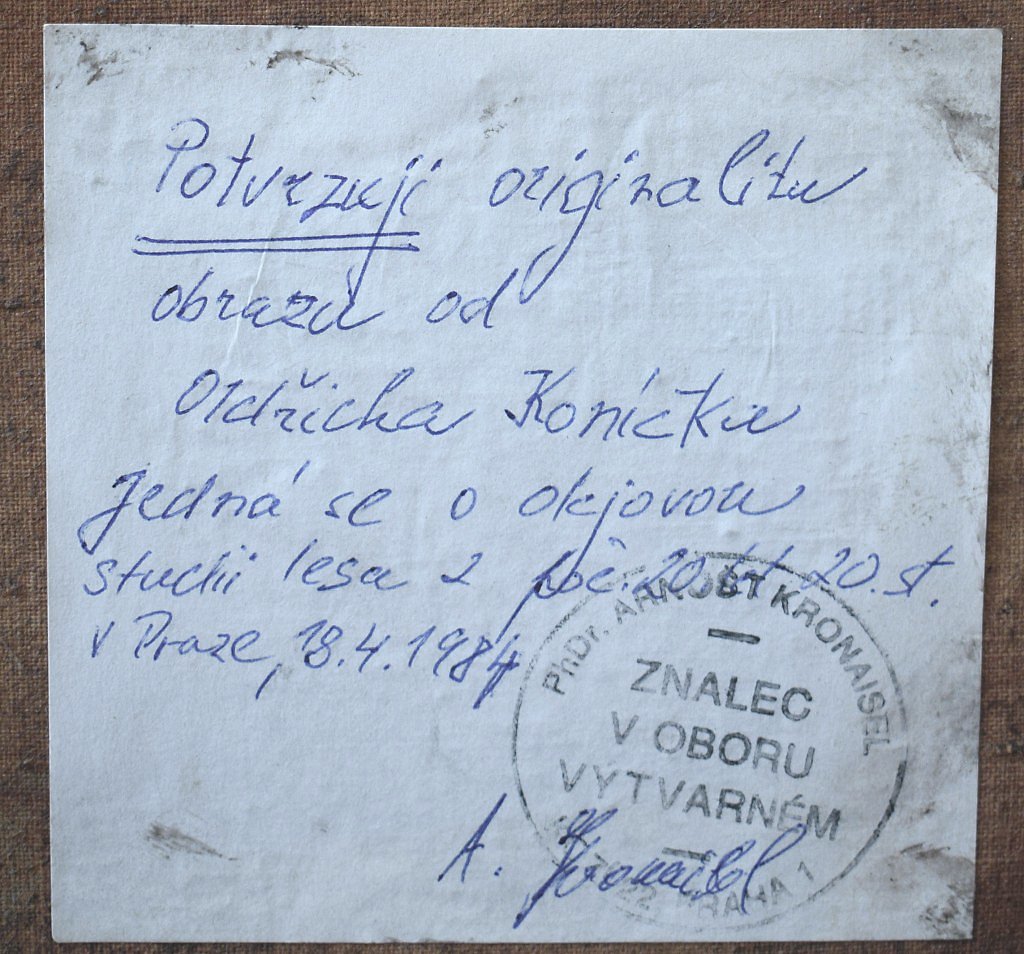 Potvrzuji originalitu
obrazu od
Oldřicha Koníčka
Jedná se o olejovou
studii lesa z poč. 20. let 20. st.
v Praze, 18.4.1984
PhDr. ARNOŠT KRONAISEL
ZNALEC
V OBORU
VÝTVARNÉM
PRAHA 1
A. Kronaisl